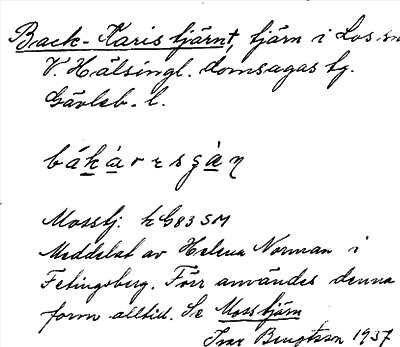 Back-Karis tjärnt, tjärn i Los sn
V. Hälsingl. domsagas tg.
Gävleb. l.
bákàresgàn
Mosstj: k G83 SM
Meddelat av Helena Norman i
Fetingsberg. Förr användes denna
form alltid. Se Mosstjärn
Ivar Bengtsson 1937